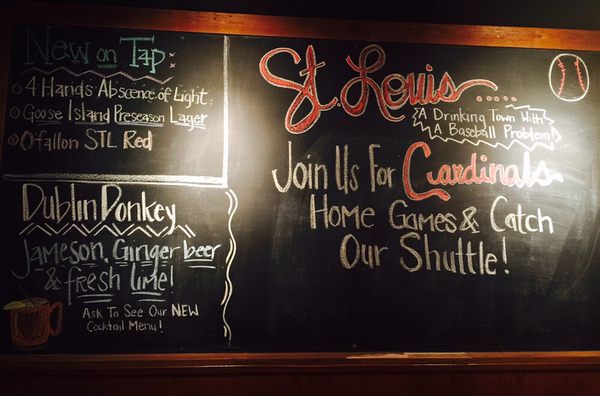 New on Tap:
4 Hands Abscence of Light
Goose Island Preseason Lager
O'fallon STL Red
Dublin Donkey
Jameson, Ginger beer
& fresh lime!
Ask To See Our NEW
Cocktail Menu!
St. Louis.....
A Drinking Town With
A Baseball Problem!
Join Us For Cardinals
Home Games & Catch
Our Shuttle!